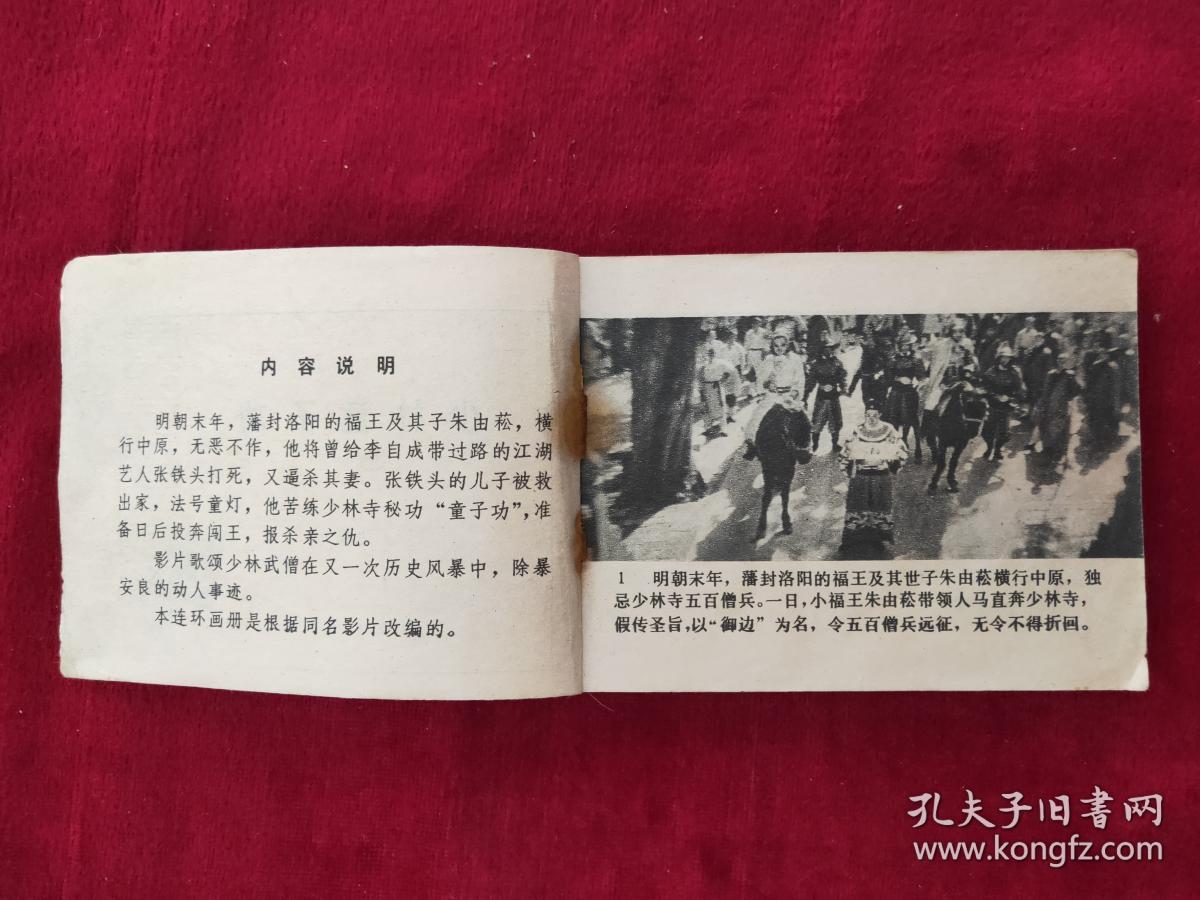 内容说明
明朝末年，藩封洛阳的福王及其子朱由菘，横
行中原，无恶不作，他将曾给李自成带过路的江湖
艺人张铁头打死，又逼杀其妻。张铁头的儿子被救
出家，法号童灯，他苦练少林寺秘功“童子功”，准
备日后投奔闯王，报杀亲之仇。
影片歌颂少林武僧在又一次历史风暴中，除暴
安良的动人事迹。
本连环画册是根据同名影片改编的。
1 明朝末年，藩封洛阳的福王及其世子朱由菘横行中原，独
忌少林寺五百僧兵。一日，小福王朱由菘带领人马直奔少林寺，
假传圣旨，以“御边”为名，令五百僧兵远征，无令不得折回。
孔夫子旧书网
www.kongfz.com